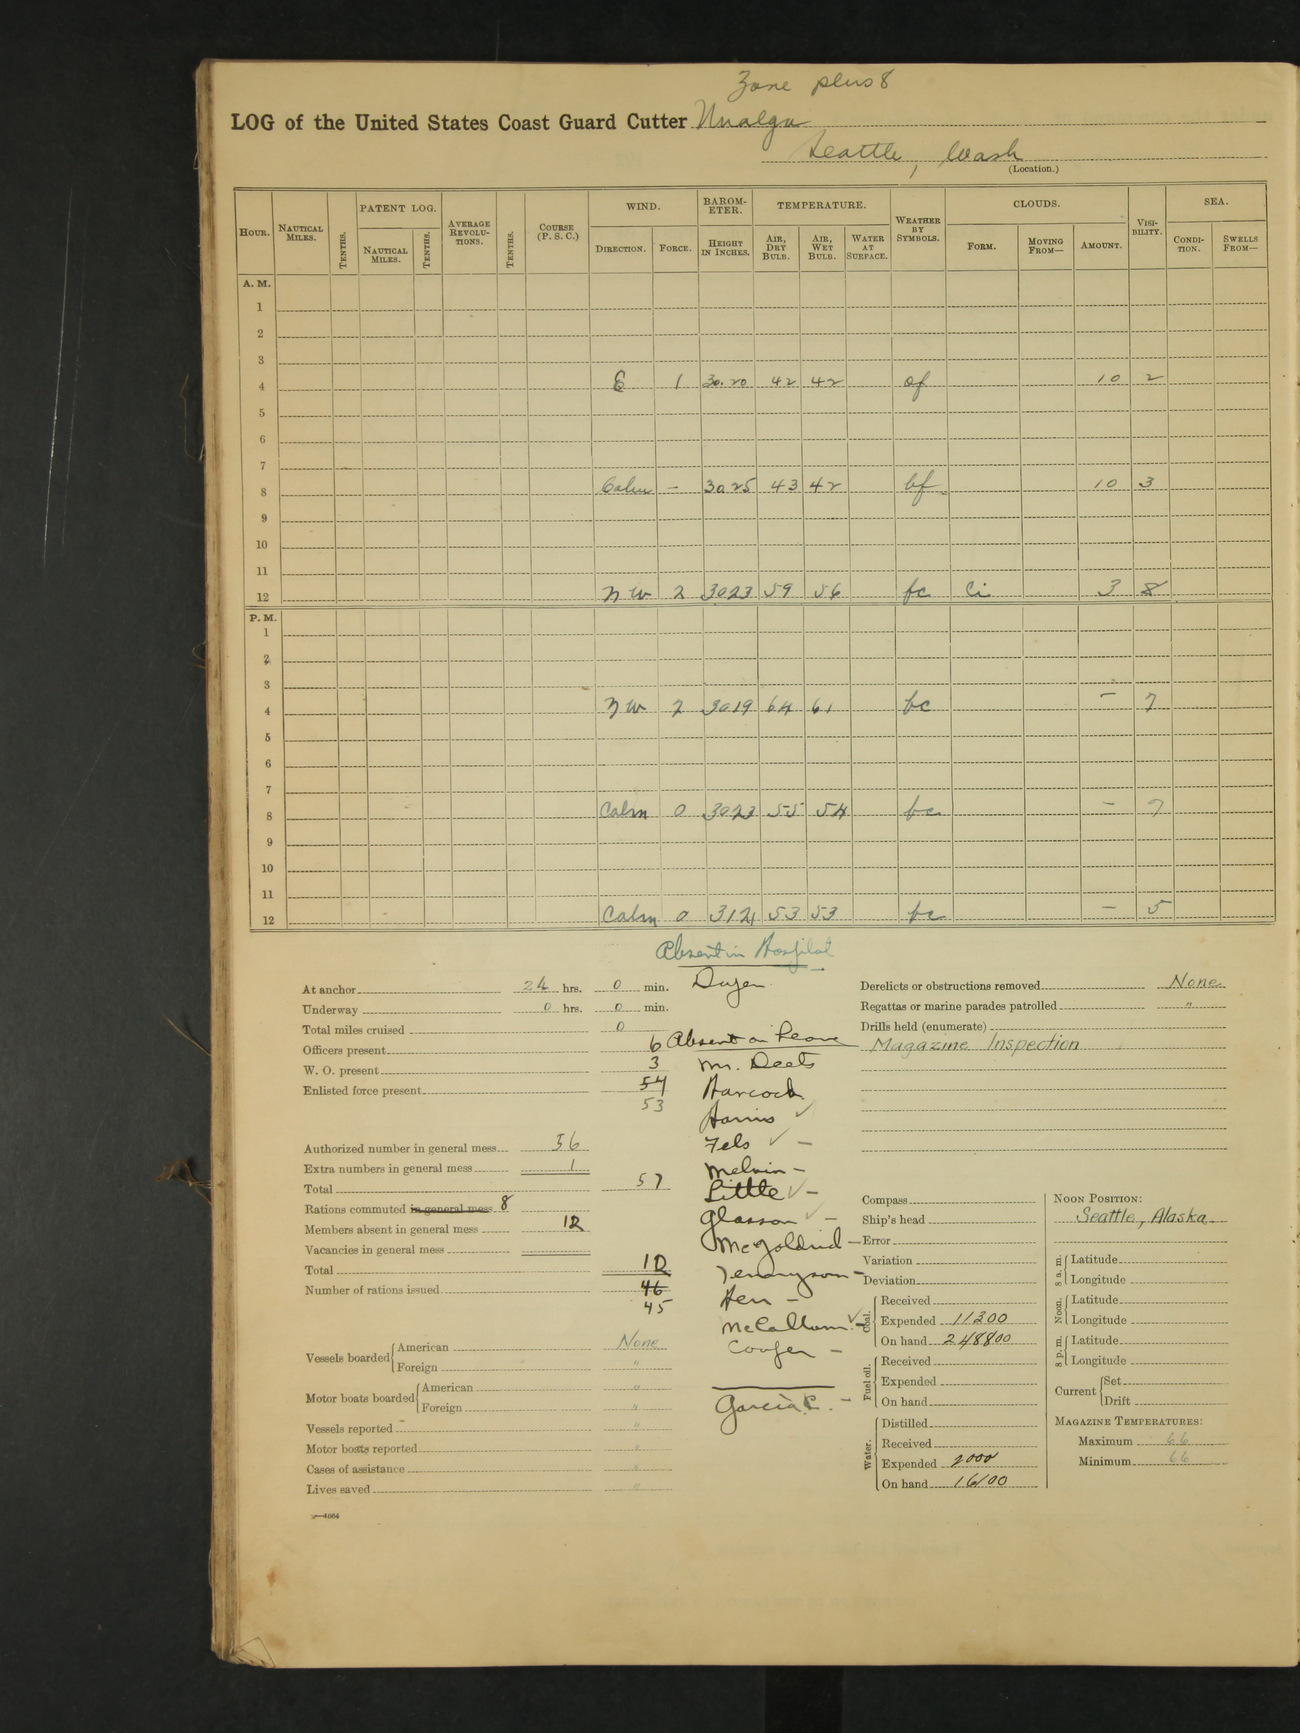 Zone plus 8
LOG of the United States Coast Guard Cutter Unalga
Seattle, Wash
(Location.)
HOUR. NAUTICAL MILES. TENTHS. PATENT LOG. NAUTICAL MILES. TENTHS. AVERAGE REVOLUTIONS. TENTHS. COURSE (P. S. C.) WIND. DIRECTION. FORCE. BAROMETER. HEIGHT IN INCHES. TEMPERATURE. AIR, DRY BULB. AIR, WET BULB. WATER AT SURFACE. WEATHER BY SYMBOLS. CLOUDS. FORM. MOVING FROM— AMOUNT. VISIBILITY. SEA. CONDITION. SWELLS FROM—
A. M.
1
2
3
4 E 1 30.20 42 42 of 10 2
5
6
7
8 Calm — 30 25 43 42 bf 10 3
9
10
11
12 NW 2 3023 59 56 fc Ci 3 8
P. M.
1
2
3
4 NW 2 3019 64 61 bc — 7
5
6
7
8 Calm 0 3023 55 54 bc — 7
9
10
11
12 Calm 0 3121 53 53 bc — 5
Absent in Hospital
At anchor 24 hrs. 0 min.
Underway 0 hrs. 0 min.
Total miles cruised 0
Officers present 6
W. O. present 3
Enlisted force present 54
53
Authorized number in general mess 56
Extra numbers in general mess 1
Total 57
Rations commuted in general mess 8
Members absent in general mess 12
Vacancies in general mess
Total 12
Number of rations issued 46
45
Vessels boarded American None
Foreign "
Motor boats boarded American "
Foreign "
Vessels reported "
Motor boats reported "
Cases of assistance "
Lives saved "
Absent on Leave
Mr. Deets
Hancock
Harris ✓
Fels ✓ —
Melvin —
Little ✓ —
Glasson ✓ —
McGoldrid —
Tennyson —
Hen —
McCallum ✓ —
Cooper —
Garcia, C. —
Derelicts or obstructions removed None
Regattas or marine parades patrolled "
Drills held (enumerate)
Magazine Inspection
Compass
Ship's head
Error
Variation
Deviation
Coal. Received
Expended 11200
On hand 248800
Fuel oil. Received
Expended
On hand
Water. Distilled
Received
Expended 2000
On hand 16100
NOON POSITION:
Seattle, Alaska
8 a. m. Latitude
Longitude
Noon. Latitude
Longitude
8 p. m. Latitude
Longitude
Current Set
Drift
MAGAZINE TEMPERATURES:
Maximum 66
Minimum 66